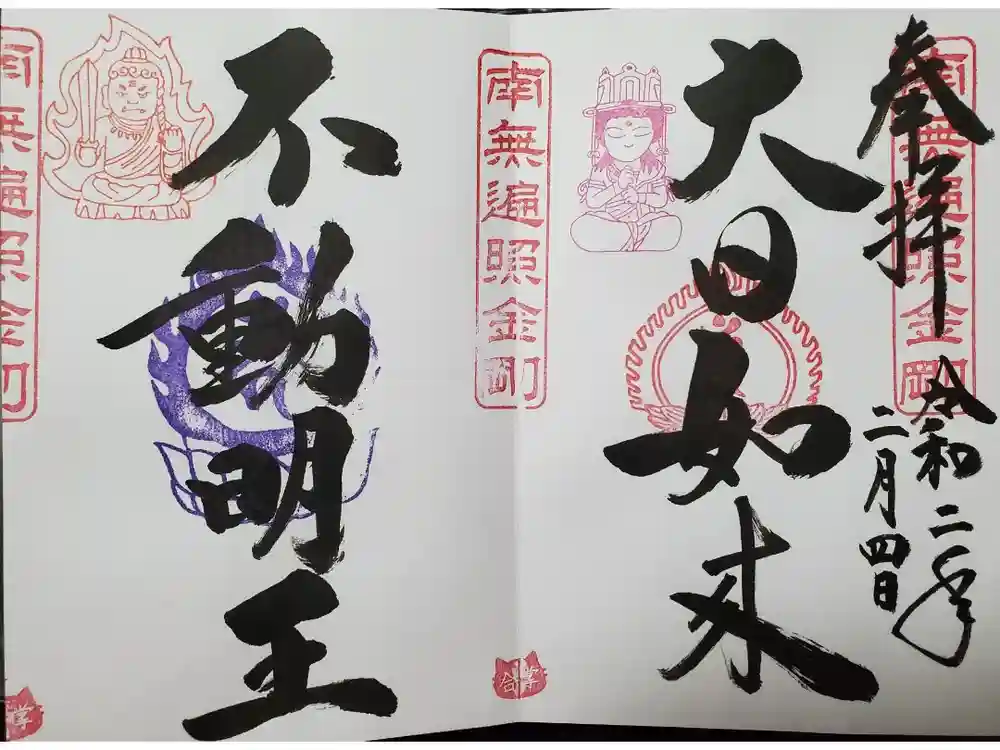 奉拝
南無遍照金剛
令和二年
二月四日
大日如来
南無遍照金剛
合掌
不動明王
南無遍照金剛
掌